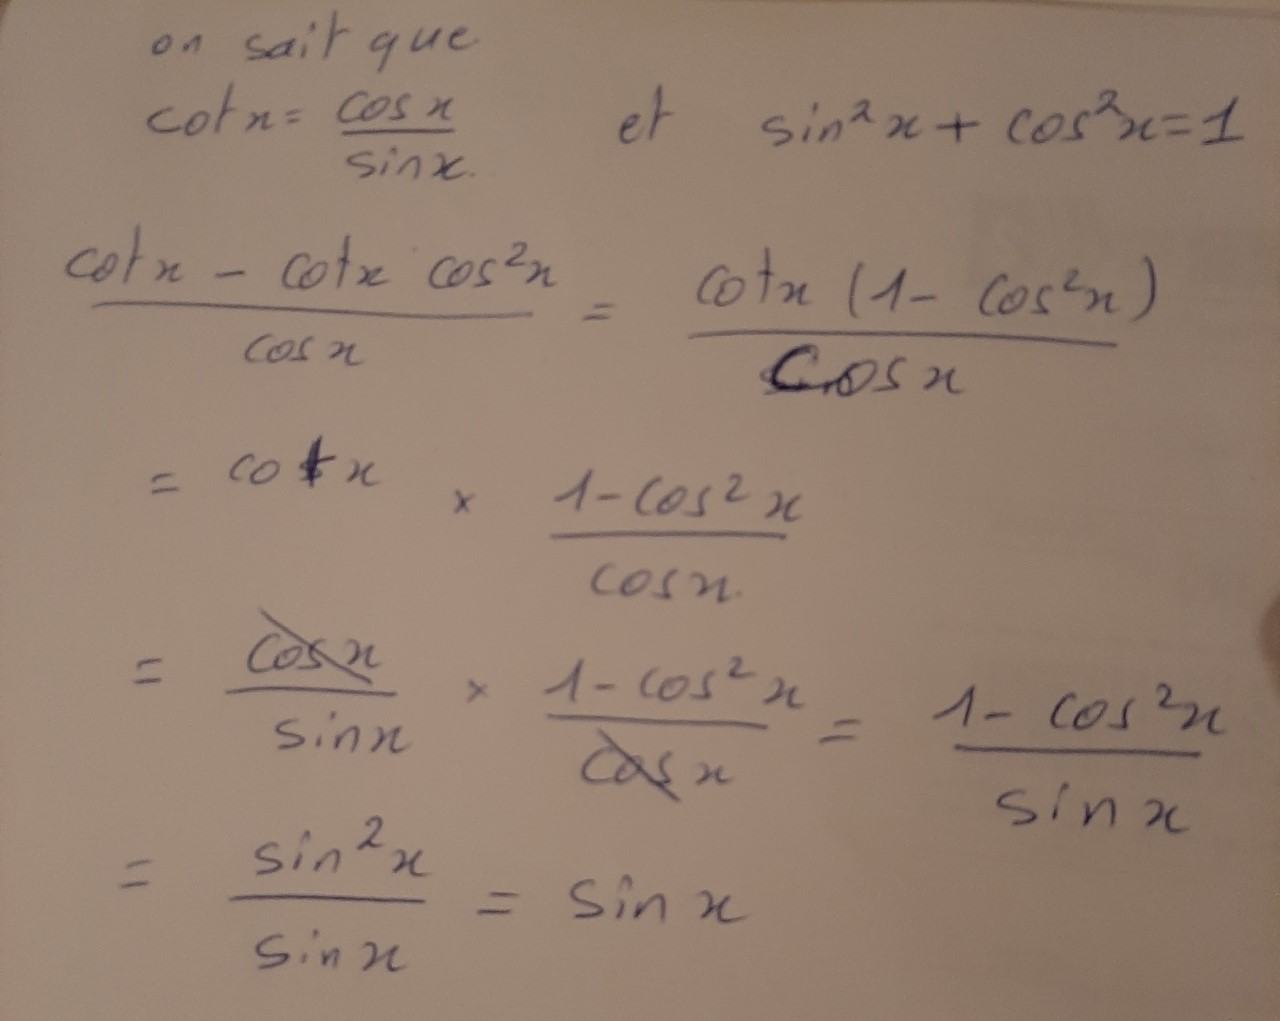 on sait que
cot x = cos x / sin x. et sin² x + cos² x = 1
(cot x - cot x cos² x) / cos x = cot x (1 - cos² x) / cos x
= cot x × (1 - cos² x) / cos x.
= cos x / sin x × (1 - cos² x) / cos x = (1 - cos² x) / sin x
= sin² x / sin x = sin x